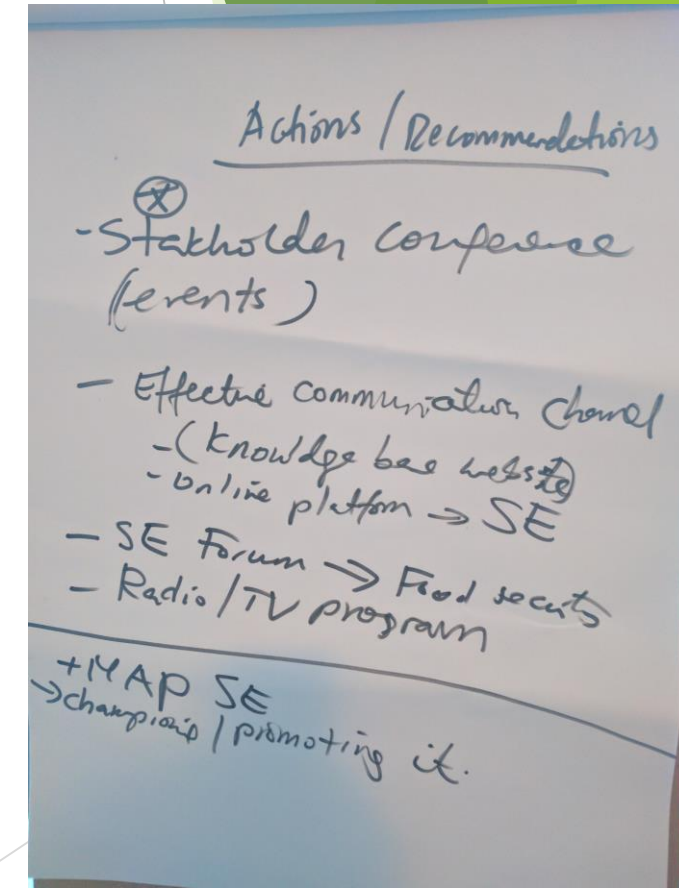 Actions / Recommendations
- Stakholder conference
(events)
- Effective communication channel
- (Knowldge base website)
- online platfom → SE
- SE Forum → Food security
- Radio / TV program
+ MAP SE
→ champions / promoting it.